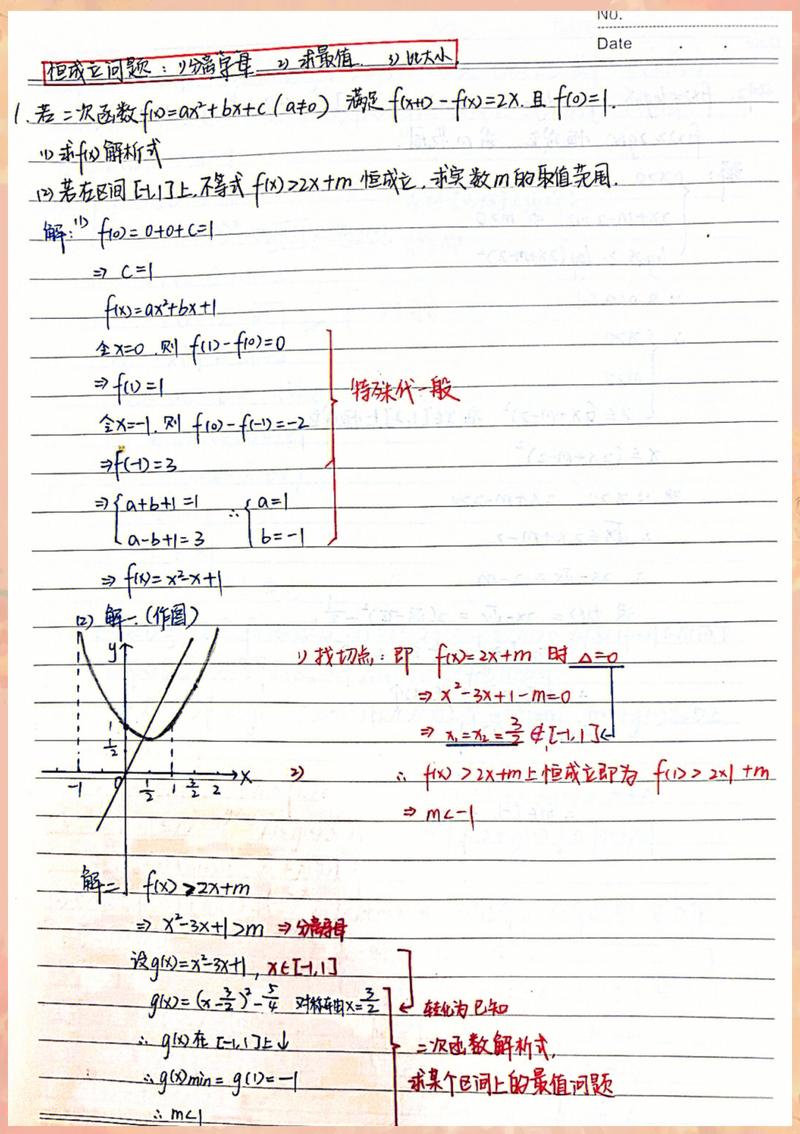 No.
Date . . .
恒成立问题：1)分离字母 2) 求最值. 3) 比大小.
1. 若二次函数f(x)=ax²+bx+c (a≠0) 满足 f(x+1)-f(x)=2x. 且 f(0)=1.
(1) 求f(x)解析式
(2) 若在区间[-1,1]上, 不等式 f(x)>2x+m 恒成立, 求实数m的取值范围.
解: (1) f(0)=0+0+c=1
⇒ c=1
f(x)=ax²+bx+1
令x=0, 则 f(1)-f(0)=0
⇒ f(1)=1
特殊代一般
令x=-1, 则 f(0)-f(-1)=-2
⇒ f(-1)=3
⇒ { a+b+1=1 ∴ { a=1
a-b+1=3 b=-1
⇒ f(x)=x²-x+1
(2) 解一、(作图)
y
1/2
-1 0 1/2 1 3/2 2 x
1) 找切点: 即 f(x)=2x+m 时 Δ=0
⇒ x²-3x+1-m=0
⇒ x₁=x₂=3/2 ∉[-1,1]
2) ∴ f(x)>2x+m上恒成立即为 f(1)>2×1+m
⇒ m<-1
解二 f(x)>2x+m
⇒ x²-3x+1>m ⇒ 分离字母
设g(x)=x²-3x+1, x∈[-1,1]
g(x)=(x-3/2)²-5/4 对称轴x=3/2
转化为已知
∴ g(x)在[-1,1]上↓
二次函数解析式,
∴ g(x)min=g(1)=-1
求某个区间上的最值问题
∴ m<1